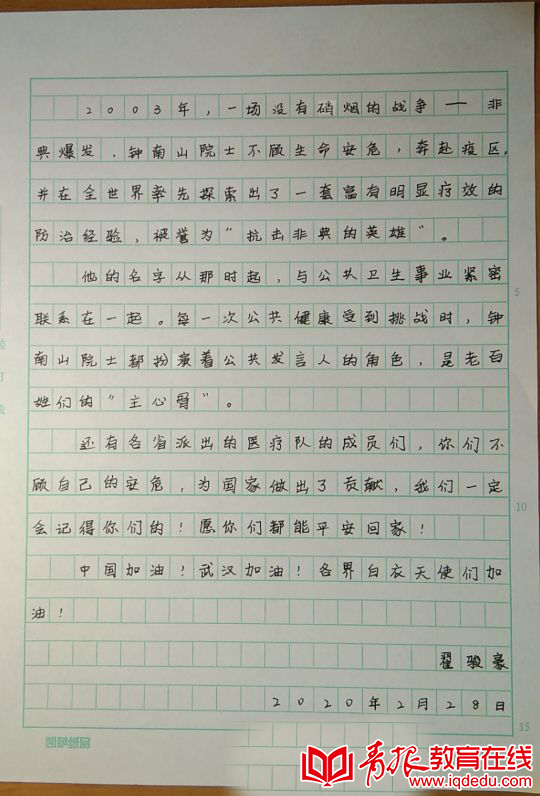 2003年，一场没有硝烟的战争——非
典爆发，钟南山院士不顾生命安危，奔赴疫区，
并在全世界率先探索出了一套富有明显疗效的
防治经验，被誉为"抗击非典的英雄"。
他的名字从那时起，与公共卫生事业紧密
联系在一起。每一次公共健康受到挑战时，钟
南山院士都扮演着公共发言人的角色，是老百
姓们的"主心骨"。
还有各省派出的医疗队的成员们，你们不
顾自己的安危，为国家做出了贡献，我们一定
会记得你们的！愿你们都能平安回家！
中国加油！武汉加油！各界白衣天使们加
油！
翟骏豪
2020年2月28日
5
10
15
装
订
凯萌纸品
青报教育在线
www.iqdedu.com